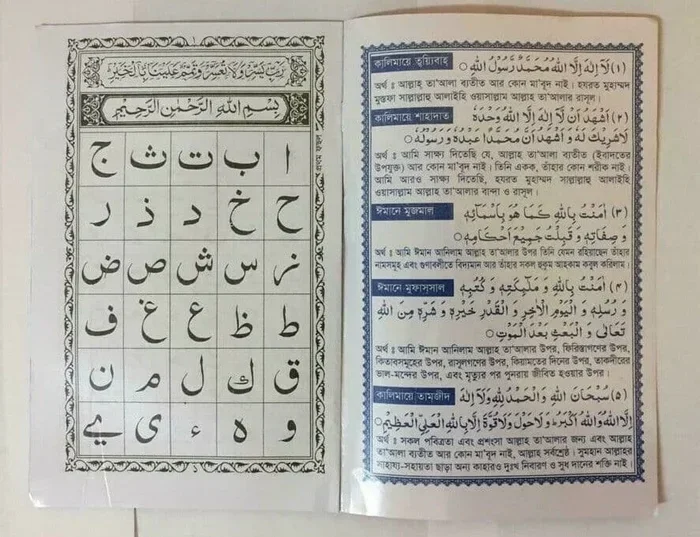 رَبِّ يَسِّرْ وَلَا تُعَسِّرْ وَتَمِّمْ عَلَيْنَا بِالْخَيْرِ
بِسْمِ اللهِ الرَّحْمٰنِ الرَّحِيْمِ
ا ب ت ث ج
ح خ د ذ ر
ز س ش ص ض
ط ظ ع غ ف
ق ك ل م ن
و ه ء ی ے
কালিমায়ে ত্বয়্যিবাহ্ (١) لَآ اِلٰهَ اِلَّا اللهُ مُحَمَّدٌ رَّسُوْلُ اللهِ ○
অর্থ ঃ আল্লাহ্ তা'আলা ব্যতীত আর কোন মা'বূদ নাই। হযরত মুহাম্মদ
মুস্তফা সাল্লাল্লাহু আলাইহি ওয়াসাল্লাম আল্লাহ তা'আলার রাসূল।
কালিমায়ে শাহাদাত (٢) اَشْهَدُ اَنْ لَّآ اِلٰهَ اِلَّا اللهُ وَحْدَهٗ
لَاشَرِيْكَ لَهٗ وَ اَشْهَدُ اَنَّ مُحَمَّدًا عَبْدُهٗ وَ رَسُوْلُهٗ ○
অর্থ ঃ আমি সাক্ষ্য দিতেছি যে, আল্লাহ্ তা'আলা ব্যতীত (ইবাদতের
উপযুক্ত) আর কোন মা'বূদ নাই। তিনি একক, তাঁহার কোন শরীক নাই।
আমি আরও সাক্ষ্য দিতেছি, হযরত মুহাম্মদ সাল্লাল্লাহু আলাইহি
ওয়াসাল্লাম আল্লাহ তা'আলার বান্দা ও রাসূল।
ঈমানে মুজমাল (٣) اٰمَنْتُ بِاللهِ كَمَا هُوَ بِاَسْمَآئِهٖ
وَ صِفَاتِهٖ وَ قَبِلْتُ جَمِيْعَ اَحْكَامِهٖ ○
অর্থ ঃ আমি ঈমান আনিলাম আল্লাহ তা'আলার উপর তিনি যেমন রহিয়াছেন তাঁহার
নামসমূহ এবং গুণাবলীতে বিদ্যমান আর তাঁহার সকল হুকুম আহকাম কবুল করিলাম।
ঈমানে মুফাস্সাল (٤) اٰمَنْتُ بِاللهِ وَ مَلٰٓئِكَتِهٖ وَ كُتُبِهٖ
وَ رُسُلِهٖ وَ الْيَوْمِ الْاٰخِرِ وَ الْقَدْرِ خَيْرِهٖ وَ شَرِّهٖ مِنَ اللهِ
تَعَالٰى وَ الْبَعْثِ بَعْدَ الْمَوْتِ ○
অর্থ ঃ আমি ঈমান আনিলাম আল্লাহ তা'আলার উপর, ফিরিস্তাগণের উপর,
কিতাবসমূহের উপর, রাসূলগণের উপর, কিয়ামতের দিনের উপর, তাকদীরের
ভাল-মন্দের উপর, এবং মৃত্যুর পর পুনরায় জীবিত হওয়ার উপর।
কালিমায়ে তামজীদ (٥) سُبْحَانَ اللهِ وَالْحَمْدُ لِلّٰهِ وَلَآ اِلٰهَ
اِلَّا اللهُ وَاللهُ اَكْبَرُ ط وَلَاحَوْلَ وَلَاقُوَّةَ اِلَّا بِاللهِ الْعَلِيِّ الْعَظِيْمِ ○
অর্থ ঃ সকল পবিত্রতা এবং প্রশংসা আল্লাহ তা'আলার জন্য এবং আল্লাহ
তা'আলা ব্যতীত আর কোন মা'বূদ নাই, আল্লাহ সর্বশ্রেষ্ঠ। সুমহান আল্লাহর
সাহায্য-সহায়তা ছাড়া অন্য কাহারও দুঃখ নিবারণ ও সুখ দানের শক্তি নাই।